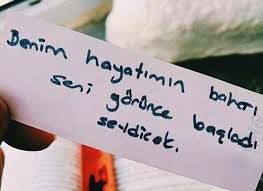 Benim hayatımın baharı
seni görünce başladı
sevdicek.